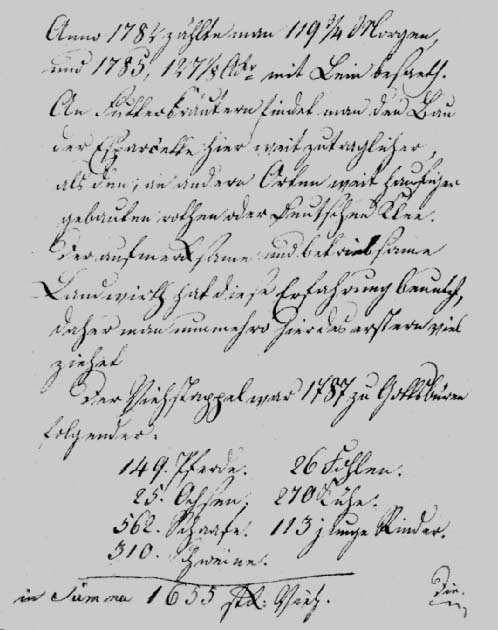 Anno 1784 zählte man 119 3/4 Morgen,
und 1785, 127 1/8 Akr mit Lein besaet.
An Futterkräutern findet man den Bau
der Esparcette hier weit zutraglicher,
als den, in andern Orten weit haufiger
gebauten rothen oder Deutschen Klee.
Der aufmerksame und betriebsame
Landwirth hat diese Erfahrung benutzt,
daher man nunmehro hier des erstern viel
ziehet
Der Viehstappel war 1787 zu Gottsbüren
folgender:
149. Pferde. 26 Fohlen.
25. Ochsen, 270 Kühe.
562. Schaafe. 113 junge Rinder.
310. Schweine.
in Summa 1655 stk: Vieh.
Die